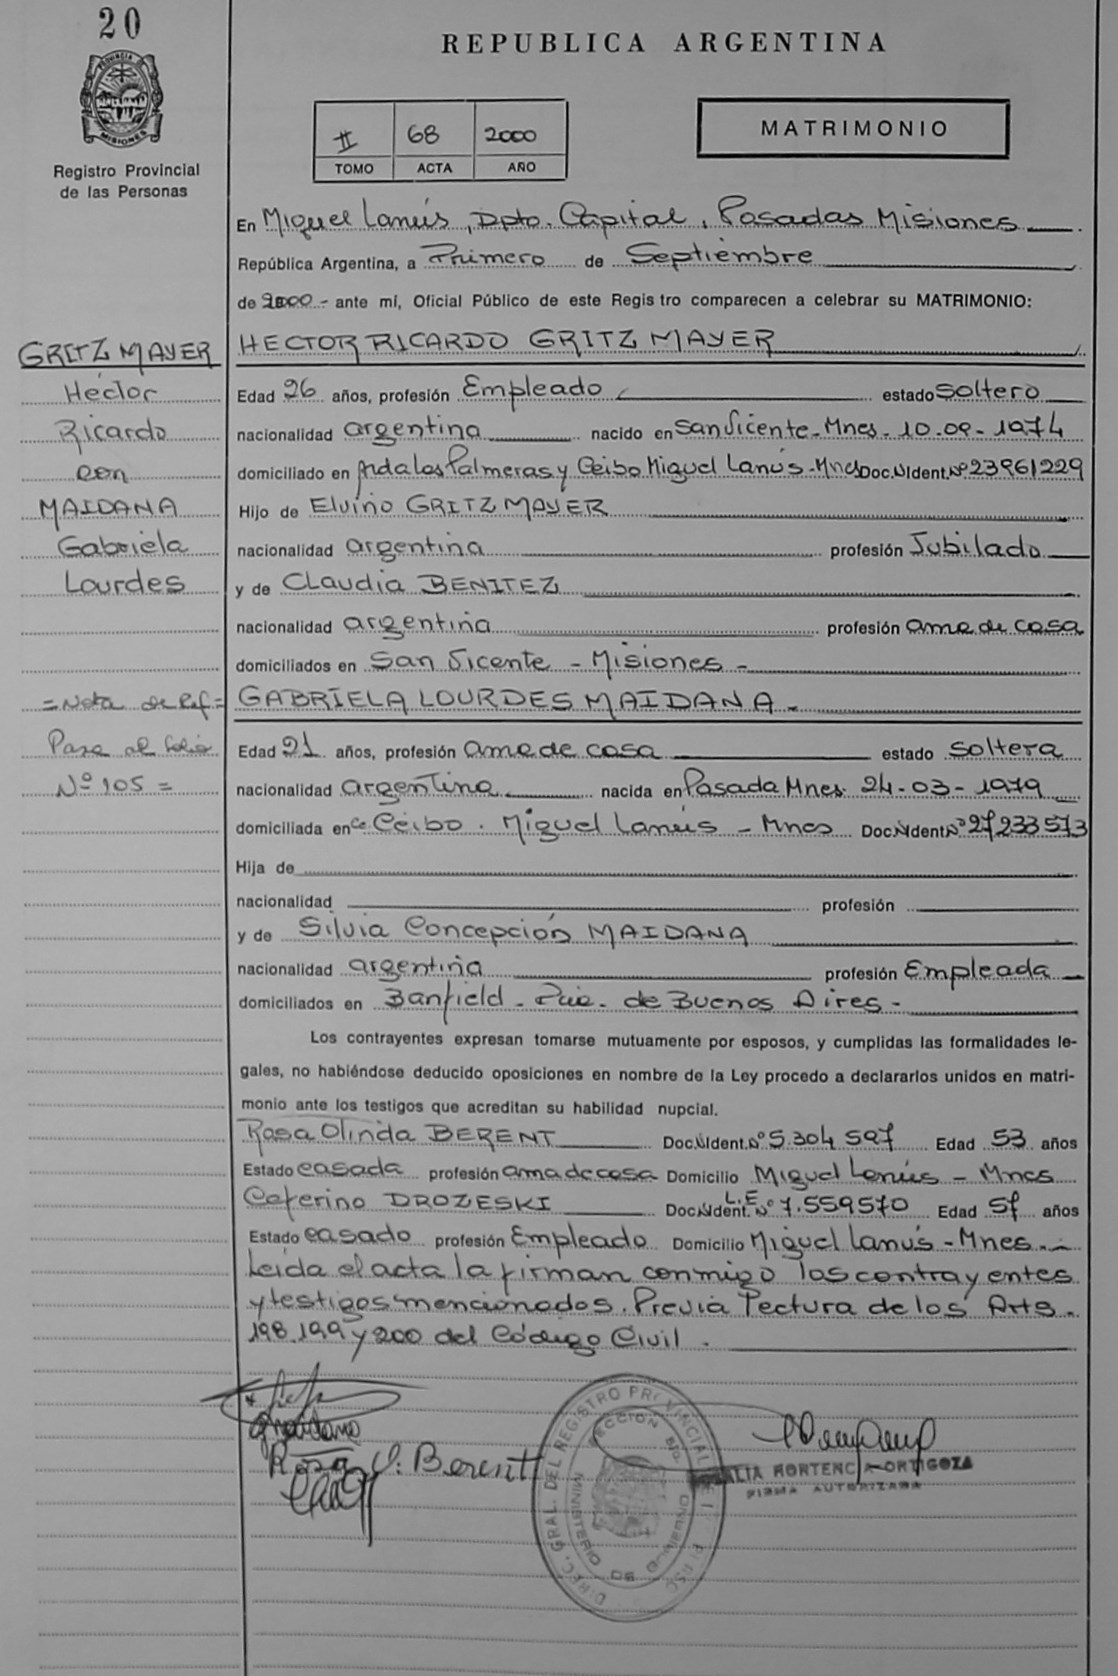 20
PROVINCIA DE
MISIONES
Registro Provincial
de las Personas
REPUBLICA ARGENTINA
II 68 2000
TOMO ACTA AÑO
MATRIMONIO
En Miguel Lanús, Dpto. Capital, Posadas Misiones
República Argentina, a Primero de Septiembre
de 2000 - ante mí, Oficial Público de este Registro comparecen a celebrar su MATRIMONIO:
GRITZ MAYER
Héctor
Ricardo
con
MAIDANA
Gabriela
Lourdes
= Nota de Ref =
Pasa al folio
Nº 105 =
HECTOR RICARDO GRITZ MAYER
Edad 26 años, profesión Empleado estado soltero
nacionalidad argentina nacido en San Vicente - Mnes - 10-09-1974
domiciliado en Avda las Palmeras y Ceibo Miguel Lanús - Mnes Doc.N.Ident.Nº 23961229
Hijo de Elvino GRITZ MAYER
nacionalidad argentina profesión Jubilado
y de Claudia BENITEZ
nacionalidad argentina profesión ama de casa
domiciliados en San Vicente - Misiones -
GABRIELA LOURDES MAIDANA -
Edad 21 años, profesión ama de casa estado soltera
nacionalidad argentina nacida en Posada Mnes. 24-03-1979
domiciliada en ce Ceibo. Miguel Lanús - Mnes Doc.N.Ident.Nº 27233573
Hija de
nacionalidad profesión
y de Silvia Concepción MAIDANA
nacionalidad argentina profesión Empleada
domiciliados en Banfield - Pcia. de Buenos Aires -
Los contrayentes expresan tomarse mutuamente por esposos, y cumplidas las formalidades le-
gales, no habiéndose deducido oposiciones en nombre de la Ley procedo a declararlos unidos en matri-
monio ante los testigos que acreditan su habilidad nupcial.
Rosa Olinda BERENT Doc.N.Ident.Nº 5.304 597 Edad 53 años
Estado casada profesión ama de casa Domicilio Miguel Lanús - Mnes
Ceferino DROZESKI Doc.N.Ident. L.E. Nº 7.559570 Edad 51 años
Estado casado profesión Empleado Domicilio Miguel Lanús - Mnes.
Leída el acta la firman conmigo los contrayentes
y testigos mencionados. Previa Lectura de los Arts.
198, 199 y 200 del Código Civil.
GMaidana
Rosa O. Berent
DIREC. GRAL. DEL REGISTRO PROVINCIAL
MINISTERIO DE GOBIERNO
HORTENCIA ORTIGOZA
FIRMA AUTORIZADA